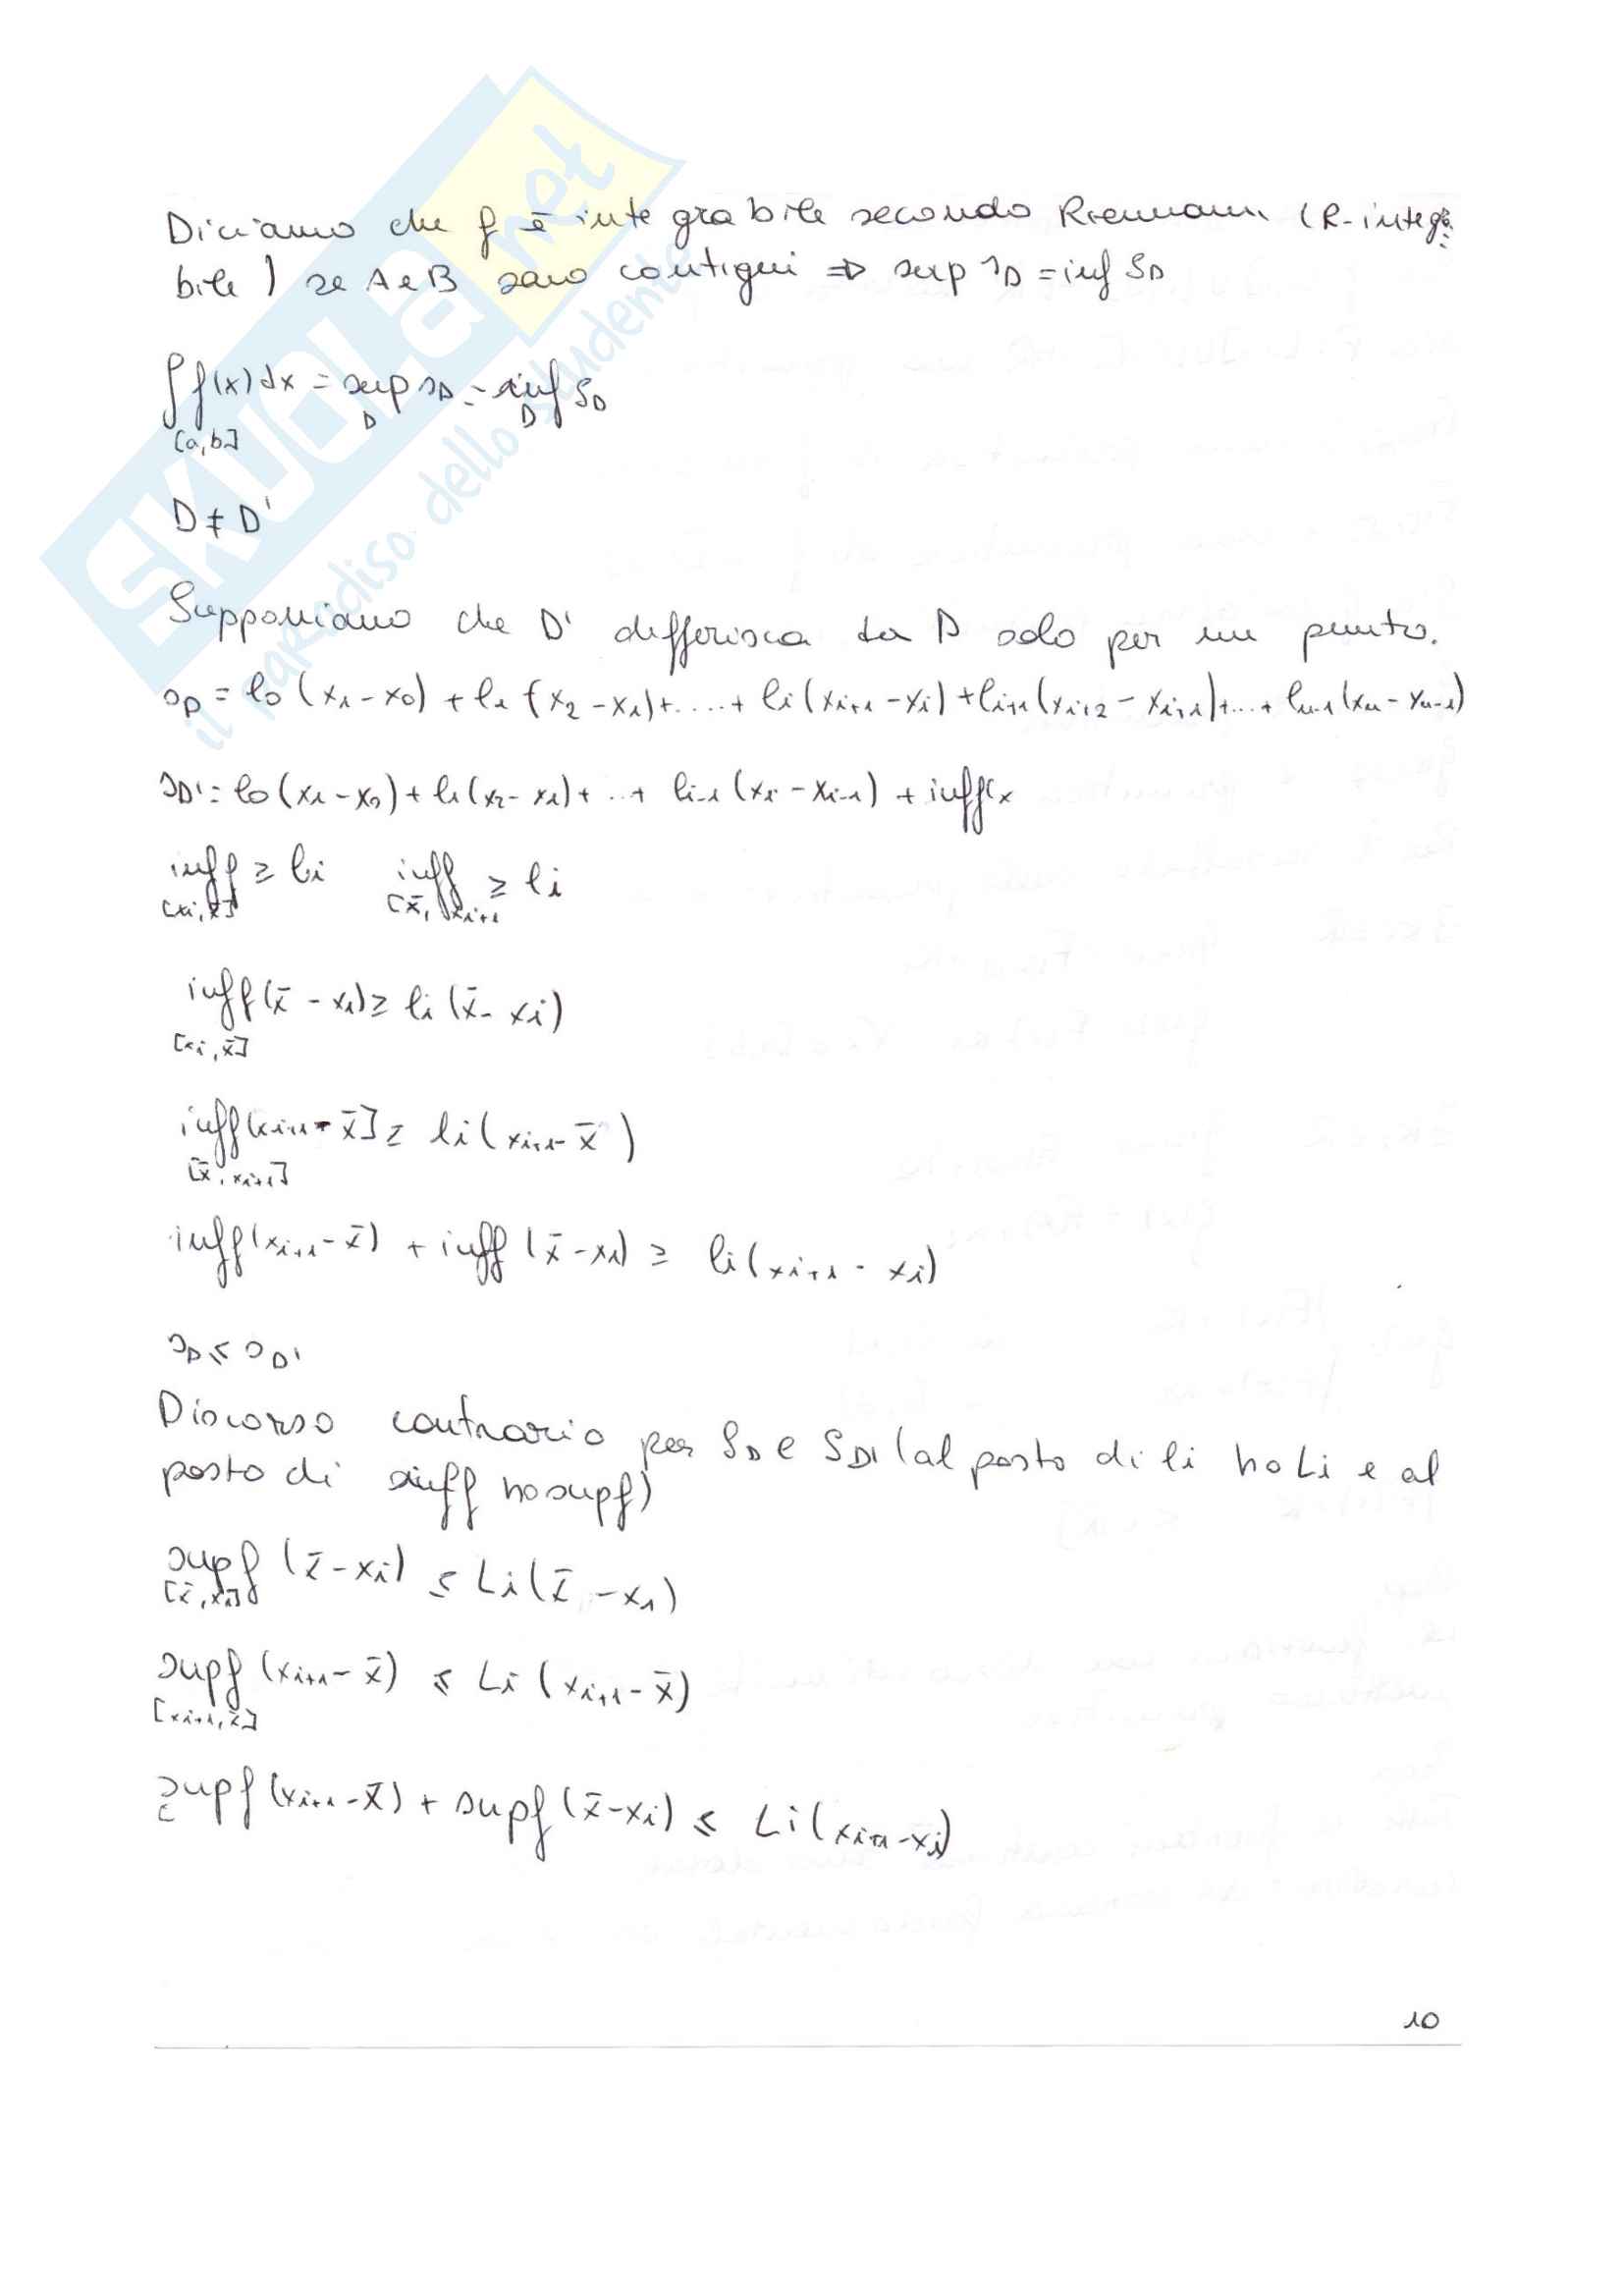 SKUOLA.net
il paradiso dello studente
Diciamo che f è integrabile secondo Riemann (R-integra
bile) se A e B sono contigui ⇒ sup s_D = inf S_D
∫_[a,b] f(x)dx = sup_D s_D = inf_D S_D
D ≠ D'
Supponiamo che D' differisca da D solo per un punto.
s_D = l_0(x_1 - x_0) + l_1(x_2 - x_1) + .... + l_i(x_{i+1} - x_i) + l_{i+1}(x_{i+2} - x_{i+1}) + ... + l_{n-1}(x_n - x_{n-1})
s_D' = l_0(x_1 - x_0) + l_1(x_2 - x_1) + ... + l_{i-1}(x_i - x_{i-1}) + inff(x
inff_[x_i, x̄] ≥ l_i inff_[x̄, x_{i+1}] ≥ l_i
inff_[x_i, x̄] (x̄ - x_i) ≥ l_i(x̄ - x_i)
inff_[x̄, x_{i+1}] [x_{i+1} - x̄] ≥ l_i(x_{i+1} - x̄)
inff(x_{i+1} - x̄) + inff(x̄ - x_i) ≥ l_i(x_{i+1} - x_i)
s_D ≤ s_D'
Discorso contrario per S_D e S_D' (al posto di l_i ho L_i e al
posto di inff ho supf)
supf_[x̄, x_i] (x̄ - x_i) ≤ L_i(x̄ - x_1)
supf_[x_{i+1}, x̄] (x_{i+1} - x̄) ≤ L_i(x_{i+1} - x̄)
supf(x_{i+1} - x̄) + supf(x̄ - x_i) ≤ L_i(x_{i+1} - x_i)
10